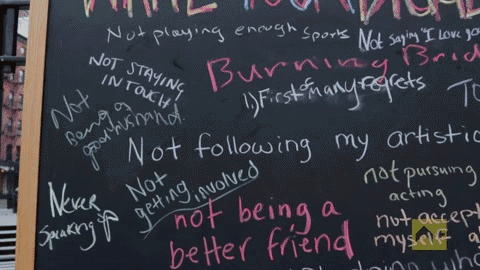 Not playing enough sports
Not Saying "I Love you
NOT STAYING
IN TOUCH
Burning Brid
1) First of Many regrets
Not
Being a
good husband.
Not following my artistic
Not
getting involved
not pursuing
acting
Never
Speaking up
not being a
better friend
not accept
myself